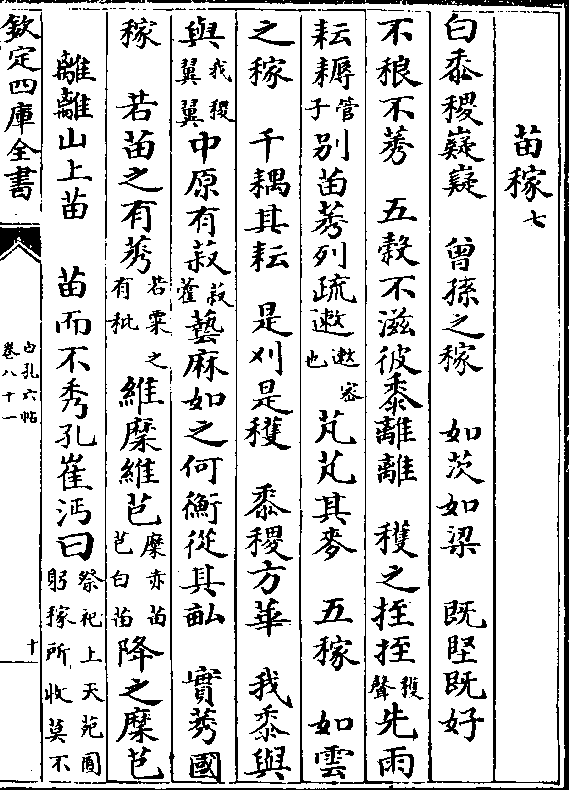 苗稼七
白黍稷嶷嶷　曾孫之稼　如茨如梁　既堅既好
不稂不莠　五穀不滋彼黍離離　穫之挃挃穫聲先雨
耘耨管子別苗莠列疏遬遬密也芃芃其麥　五稼　如雲
之稼　千耦其耘　是刈是穫　黍稷方華　我黍與
與我稷翼翼中原有菽菽藿藝麻如之何衡從其畝　實莠國
稼　若苗之有莠若粟之有秕維穈維芑穈赤苗芑白苗降之穈芑
離離山上苗　苗而不秀孔崔沔曰祭祀上天苑囿躬稼所收莫不
欽定四庫全書
白孔六帖
卷八十一
十